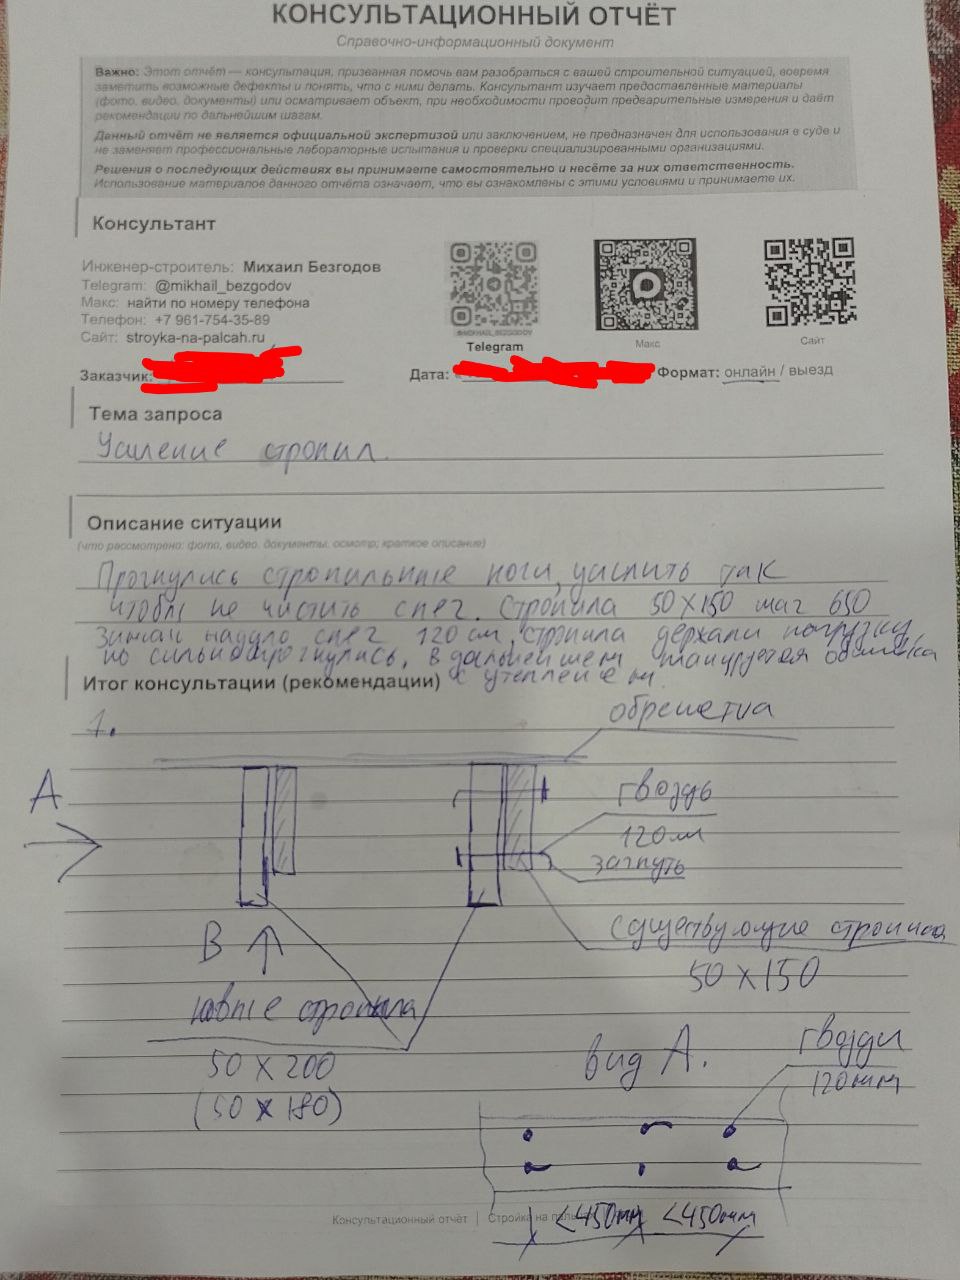 КОНСУЛЬТАЦИОННЫЙ ОТЧЁТ
Справочно-информационный документ
Важно: Этот отчёт — консультация, призванная помочь вам разобраться с вашей строительной ситуацией, вовремя
заметить возможные дефекты и понять, что с ними делать. Консультант изучает предоставленные материалы
(фото, видео, документы) или осматривает объект, при необходимости проводит предварительные измерения и даёт
рекомендации по дальнейшим шагам.
Данный отчёт не является официальной экспертизой или заключением, не предназначен для использования в суде и
не заменяет профессиональные лабораторные испытания и проверки специализированными организациями.
Решения о последующих действиях вы принимаете самостоятельно и несёте за них ответственность.
Использование материалов данного отчёта означает, что вы ознакомлены с этими условиями и принимаете их.
Консультант
Инженер-строитель: Михаил Безгодов
Telegram: @mikhail_bezgodov
Макс: найти по номеру телефона
Телефон: +7 961-754-35-89
Сайт: stroyka-na-palcah.ru
@MIKHAIL_BEZGODOV
Telegram
Макс
Сайт
Заказчик: Дата: Формат: онлайн / выезд
Тема запроса
Усиление стропил.
Описание ситуации
(что рассмотрено: фото, видео, документы, осмотр; краткое описание)
Прогнулись стропильные ноги, усилить так
чтобы не чистить снег. Стропила 50х150 шаг 650
Зимой надуло снег 120 см, стропила держали нагрузку,
но сильно прогнулись, в дальнейшем планируется обшивка
с утеплением.
Итог консультации (рекомендации)
1.
обрешетка
А
гвоздь
120мм
загнуть
существующие стропила
50х150
В
новые стропила
50 х 200
(50 х 180)
вид А.
гвозди
120мм
<450мм <450мм
Консультационный отчёт | Стройка на